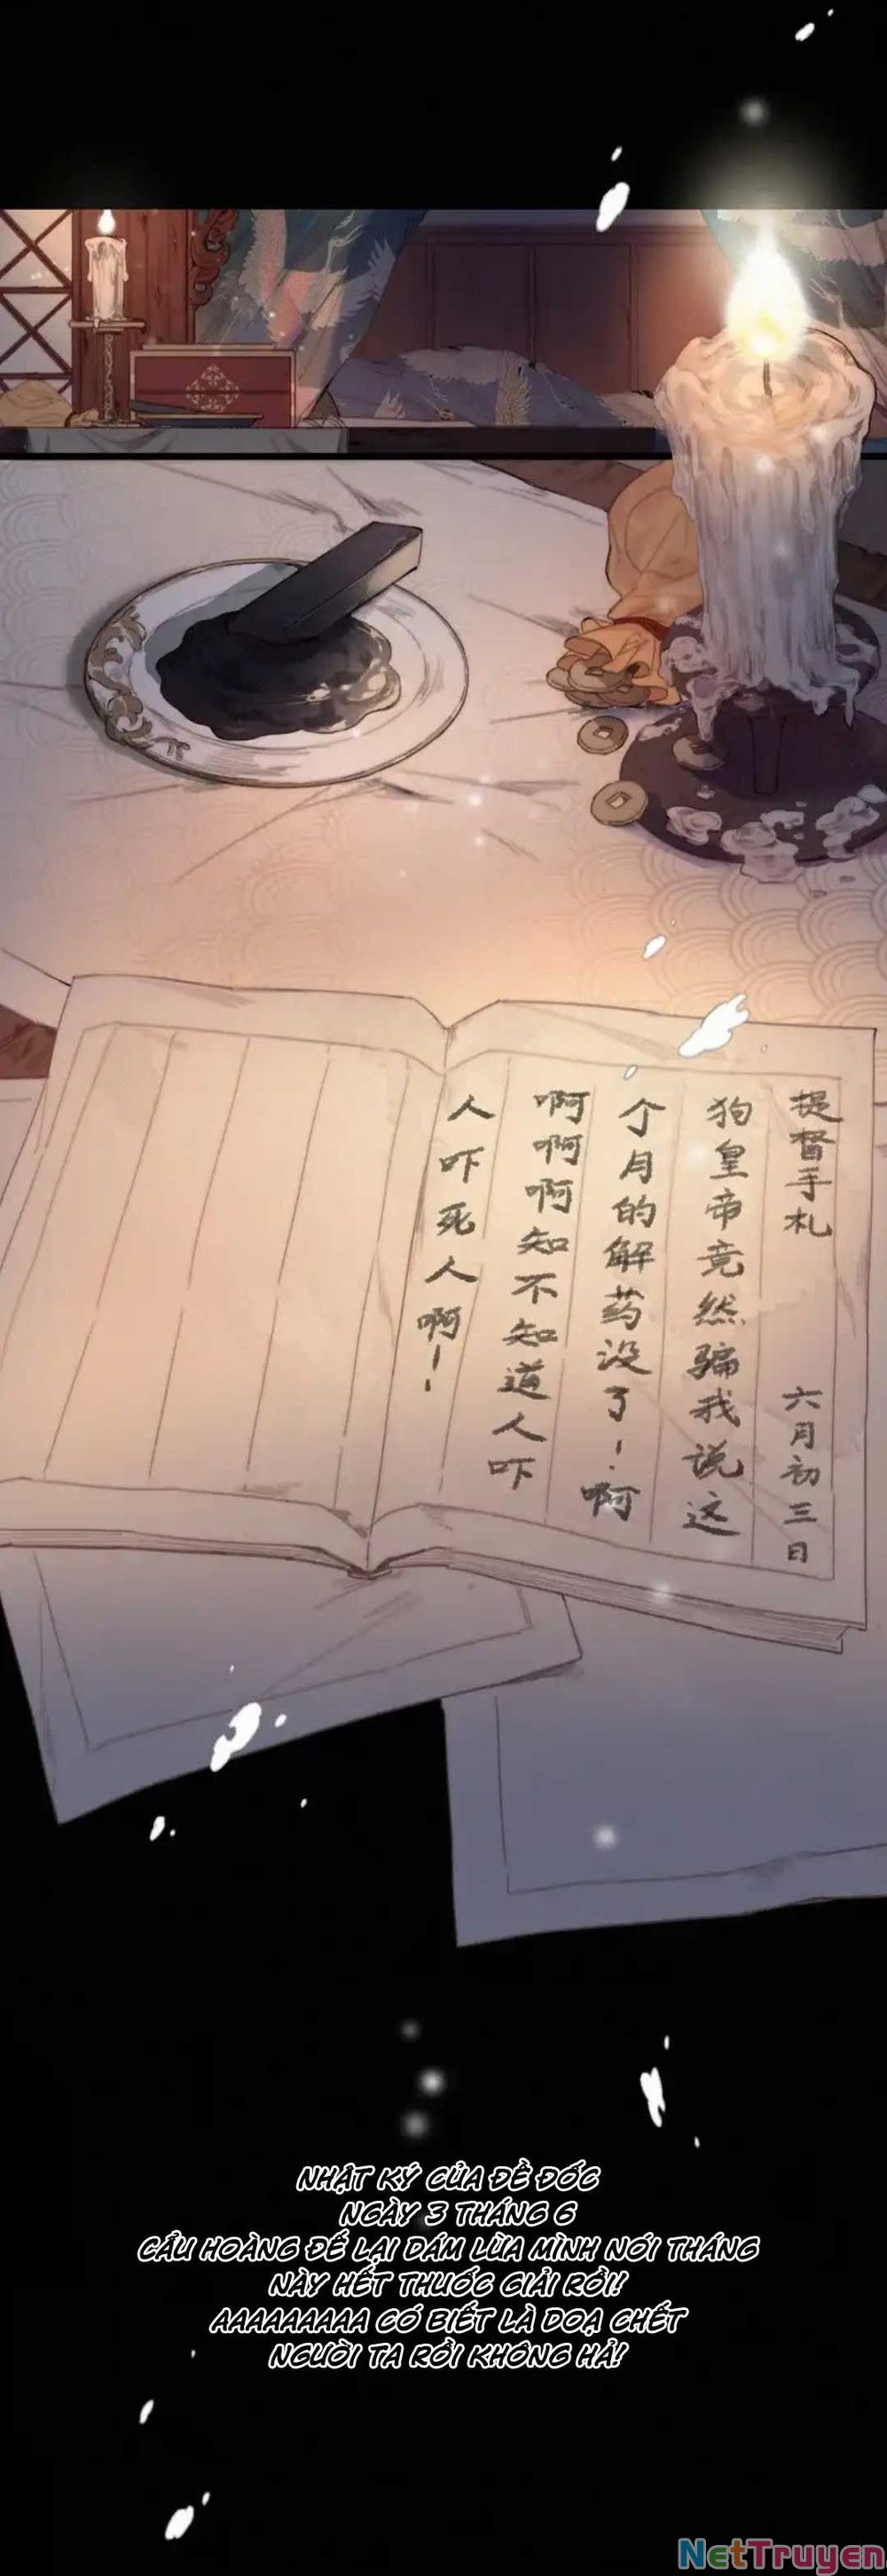 提督手札 六月初三日
狗皇帝竟然骗我说这
个月的解药没了!啊
啊啊啊知不知道人吓
人吓死人啊!!
NHẬT KÝ CỦA ĐỀ ĐỐC
NGÀY 3 THÁNG 6
CẨU HOÀNG ĐẾ LẠI DÁM LỪA MÌNH NÓI THÁNG
NÀY HẾT THUỐC GIẢI RỒI!
AAAAAAAAA CÓ BIẾT LÀ DOẠ CHẾT
NGƯỜI TA RỒI KHÔNG HẢ!
NetTruyen